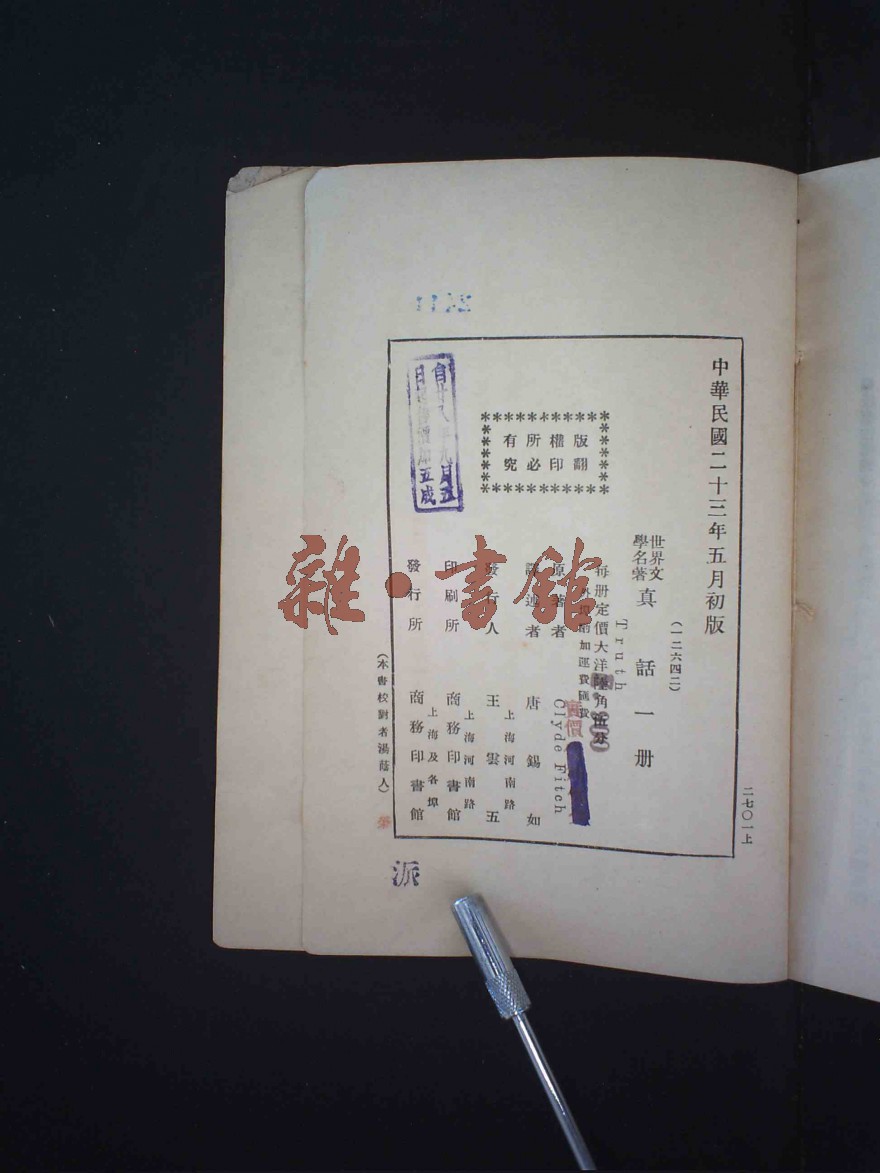 中華民國二十三年五月初版
二七〇一上
(一二六四二)
世界文
學名著
真話一册
Truth
每册定價大洋陸角伍分
外埠酌加運費匯費
實價
原著者
Clyde Fitch
譯述者
唐錫如
發行人
上海河南路
王雲五
印刷所
上海河南路
商務印書館
發行所
上海及各埠
商務印書館
版權所有
翻印必究
(本書校對者湯蔭人)
自廿八年九月五
五成
派
雜·書館